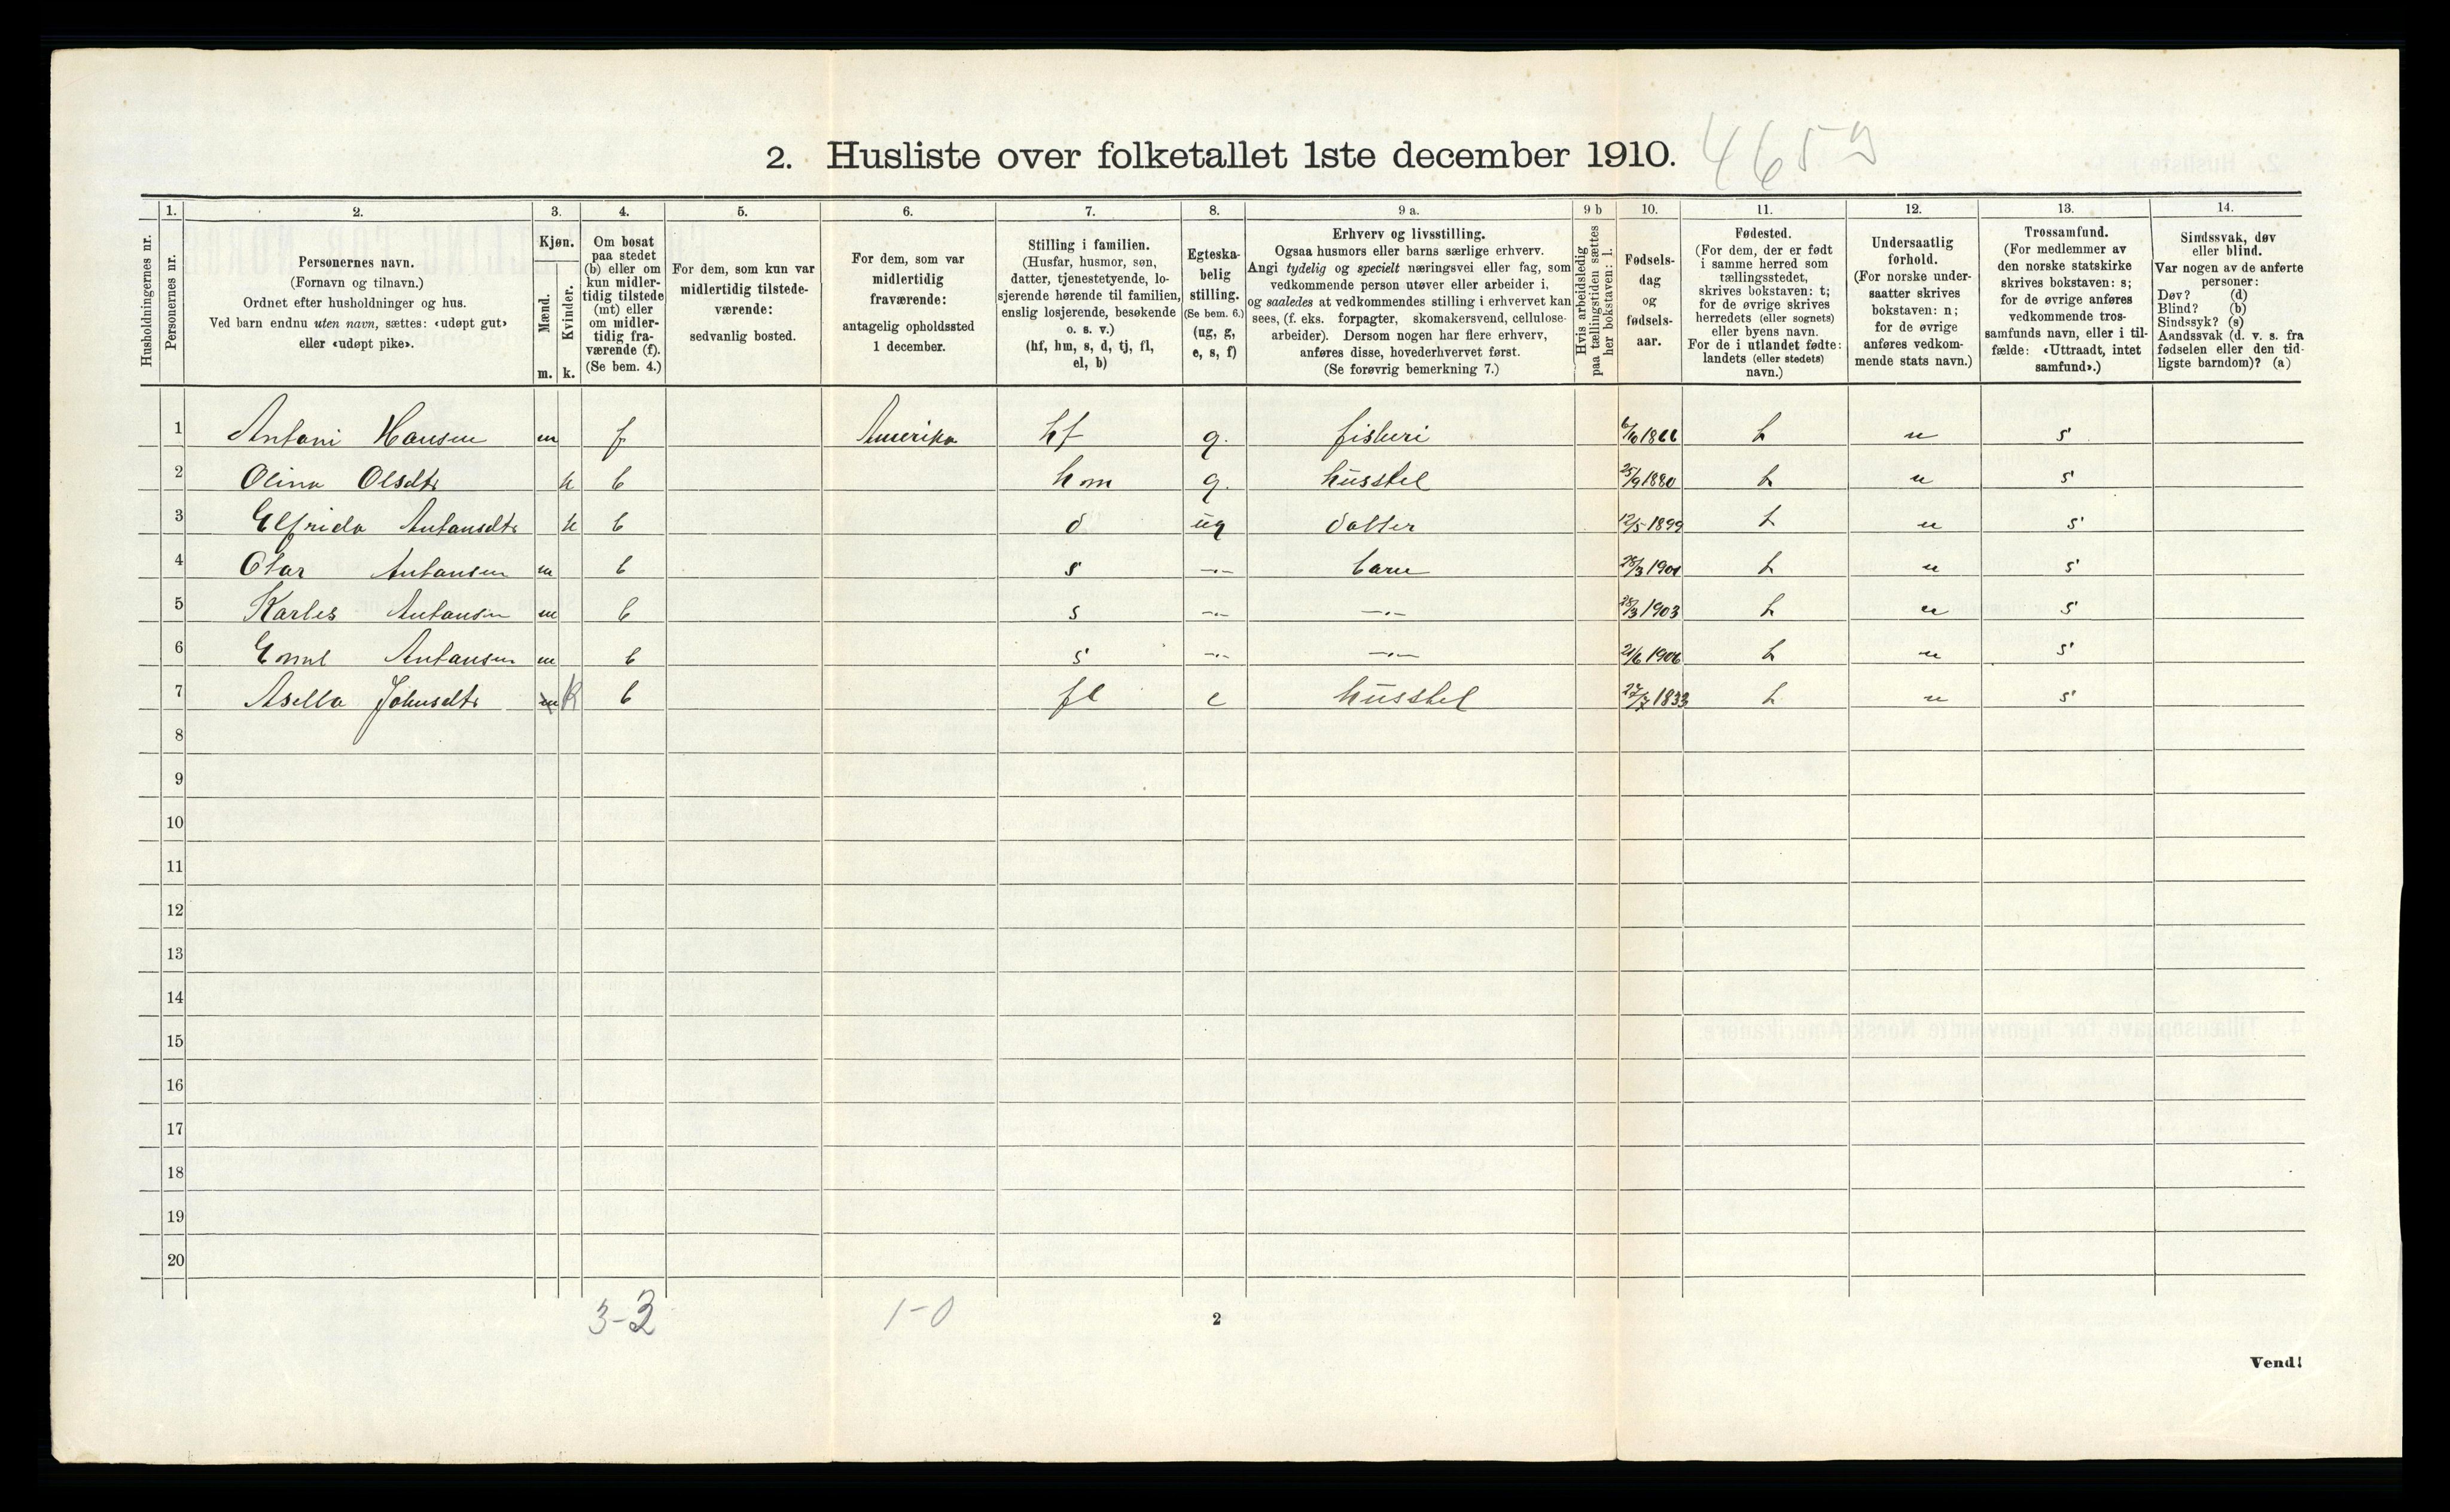 2. Husliste over folketallet 1ste december 1910.
Husholdningernes nr.
1. Personernes nr.
2. Personernes navn. (Fornavn og tilnavn.) Ordnet efter husholdninger og hus. Ved barn endnu uten navn, sættes: «udøpt gut» eller «udøpt pike».
3. Kjøn. Mænd. m. Kvinder. k.
4. Om bosat paa stedet (b) eller om kun midlertidig tilstede (mt) eller om midlertidig fraværende (f). (Se bem. 4.)
5. For dem, som kun var midlertidig tilstedeværende: sedvanlig bosted.
6. For dem, som var midlertidig fraværende: antagelig opholdssted 1 december.
7. Stilling i familien. (Husfar, husmor, søn, datter, tjenestetyende, losjerende hørende til familien, enslig losjerende, besøkende o. s. v.) (hf, hm, s, d, tj, fl, el, b)
8. Egteskabelig stilling. (Se bem. 6.) (ug, g, e, s, f)
9 a. Erhverv og livsstilling. Ogsaa husmors eller barns særlige erhverv. Angi tydelig og specielt næringsvei eller fag, som vedkommende person utøver eller arbeider i, og saaledes at vedkommendes stilling i erhvervet kan sees, (f. eks. forpagter, skomakersvend, cellulosearbeider). Dersom nogen har flere erhverv, anføres disse, hovederhvervet først. (Se forøvrig bemerkning 7.)
9 b Hvis arbeidsledig paa tællingstiden sættes her bokstaven: l.
10. Fødselsdag og fødselsaar.
11. Fødested. (For dem, der er født i samme herred som tællingsstedet, skrives bokstaven: t; for de øvrige skrives herredets (eller sognets) eller byens navn. For de i utlandet fødte: landets (eller stedets) navn.)
12. Undersaatlig forhold. (For norske undersaatter skrives bokstaven: n; for de øvrige anføres vedkommende stats navn.)
13. Trossamfund. (For medlemmer av den norske statskirke skrives bokstaven: s; for de øvrige anføres vedkommende trossamfunds navn, eller i tilfælde: «Uttraadt, intet samfund».)
14. Sindssvak, døv eller blind. Var nogen av de anførte personer: Døv? (d) Blind? (b) Sindssyk? (s) Aandssvak (d. v. s. fra fødselen eller den tidligste barndom)? (a)
1 Antoni Hansen m f Amerika hf g. fiskeri 6/10 1866 t n s
2 Olina Olsdtr k b hm g. husstel 25/9 1880 t n s
3 Elfrida Antonsdtr k b d ug datter 12/5 1899 t n s
4 Olar Antonsen m b s -„- barn 28/3 1901 t n s
5 Karles Antonsen m b s -„- -„- 28/3 1903 t n s
6 Emil Antonsen m b s -„- -„- 21/6 1906 t n s
7 Asella Johnsdtr m k b fl e husstel 27/7 1833 t n s
8
9
10
11
12
13
14
15
16
17
18
19
20
3-3 1-0
2
Vend!